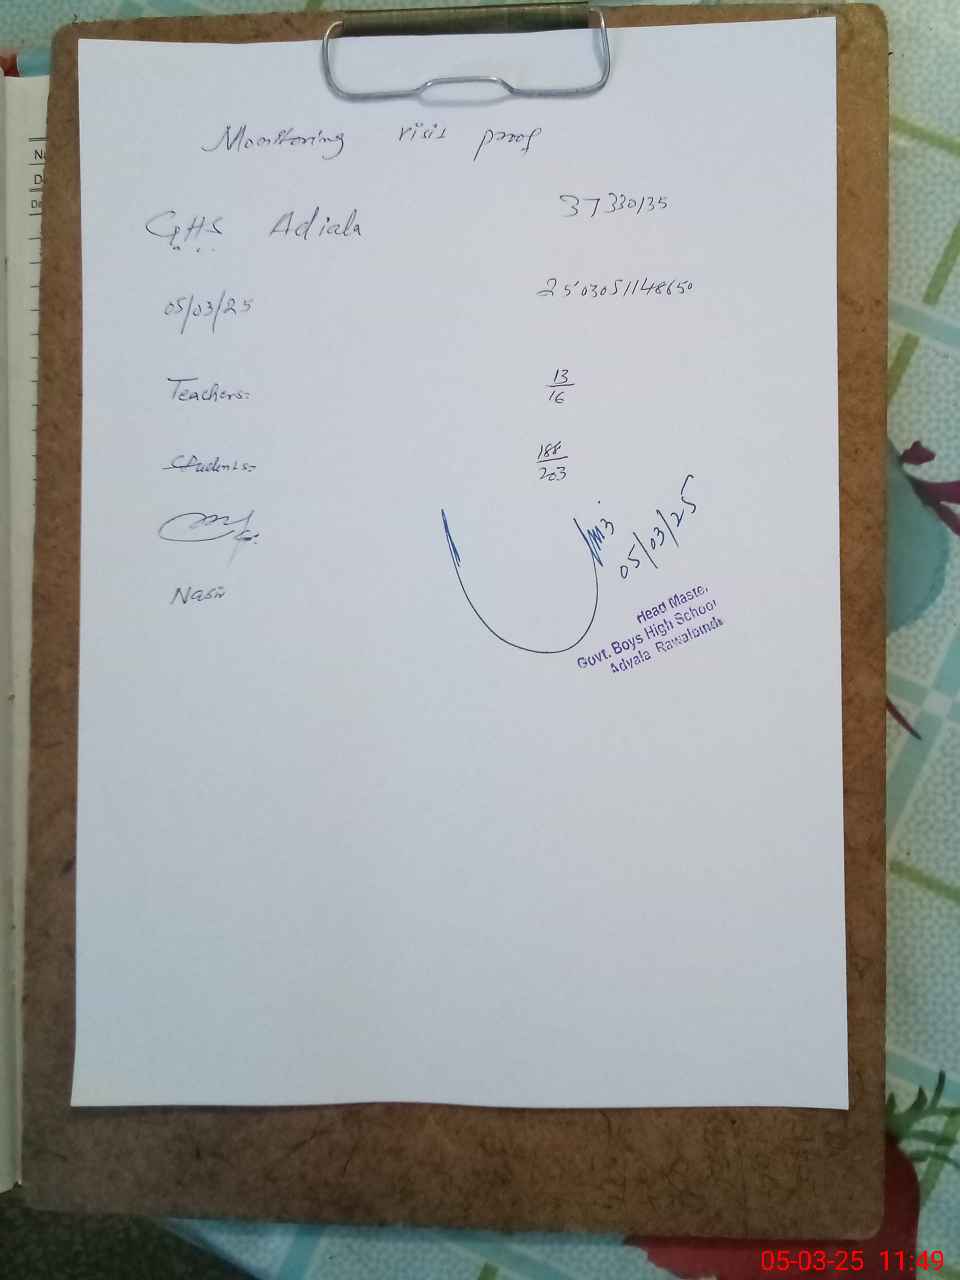 Monitoring visit proof
GHS Adiala 37330135
05/03/25 2503051148650
Teachers: 13/16
Students:- 188/203
05/03/25
Nasir
Head Master
Govt. Boys High School
Adyala Rawalpindi
05-03-25 11:49